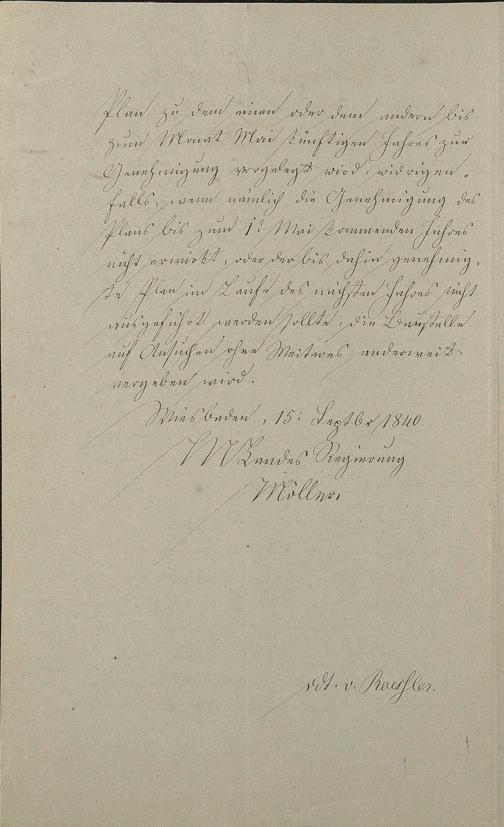 Plan zu dem einen oder dem andern bis
zum Monat Mai künftigen Jahres zur
Genehmigung vorgelegt wird, widrigen-
falls, wenn nämlich die Genehmigung des
Plans bis zum 1t Mai kommenden Jahres
nicht erwirkt, oder der bis dahin genehmig-
te Plan im Laufe des nächsten Jahres nicht
ausgeführt werden sollte, die Baustelle
auf Ansuchen ohne Weiteres anderweit
vergeben wird.
Wiesbaden, 15. Septbr 1840.
Landes Regierung
Möller.
vdt. v. Roessler.